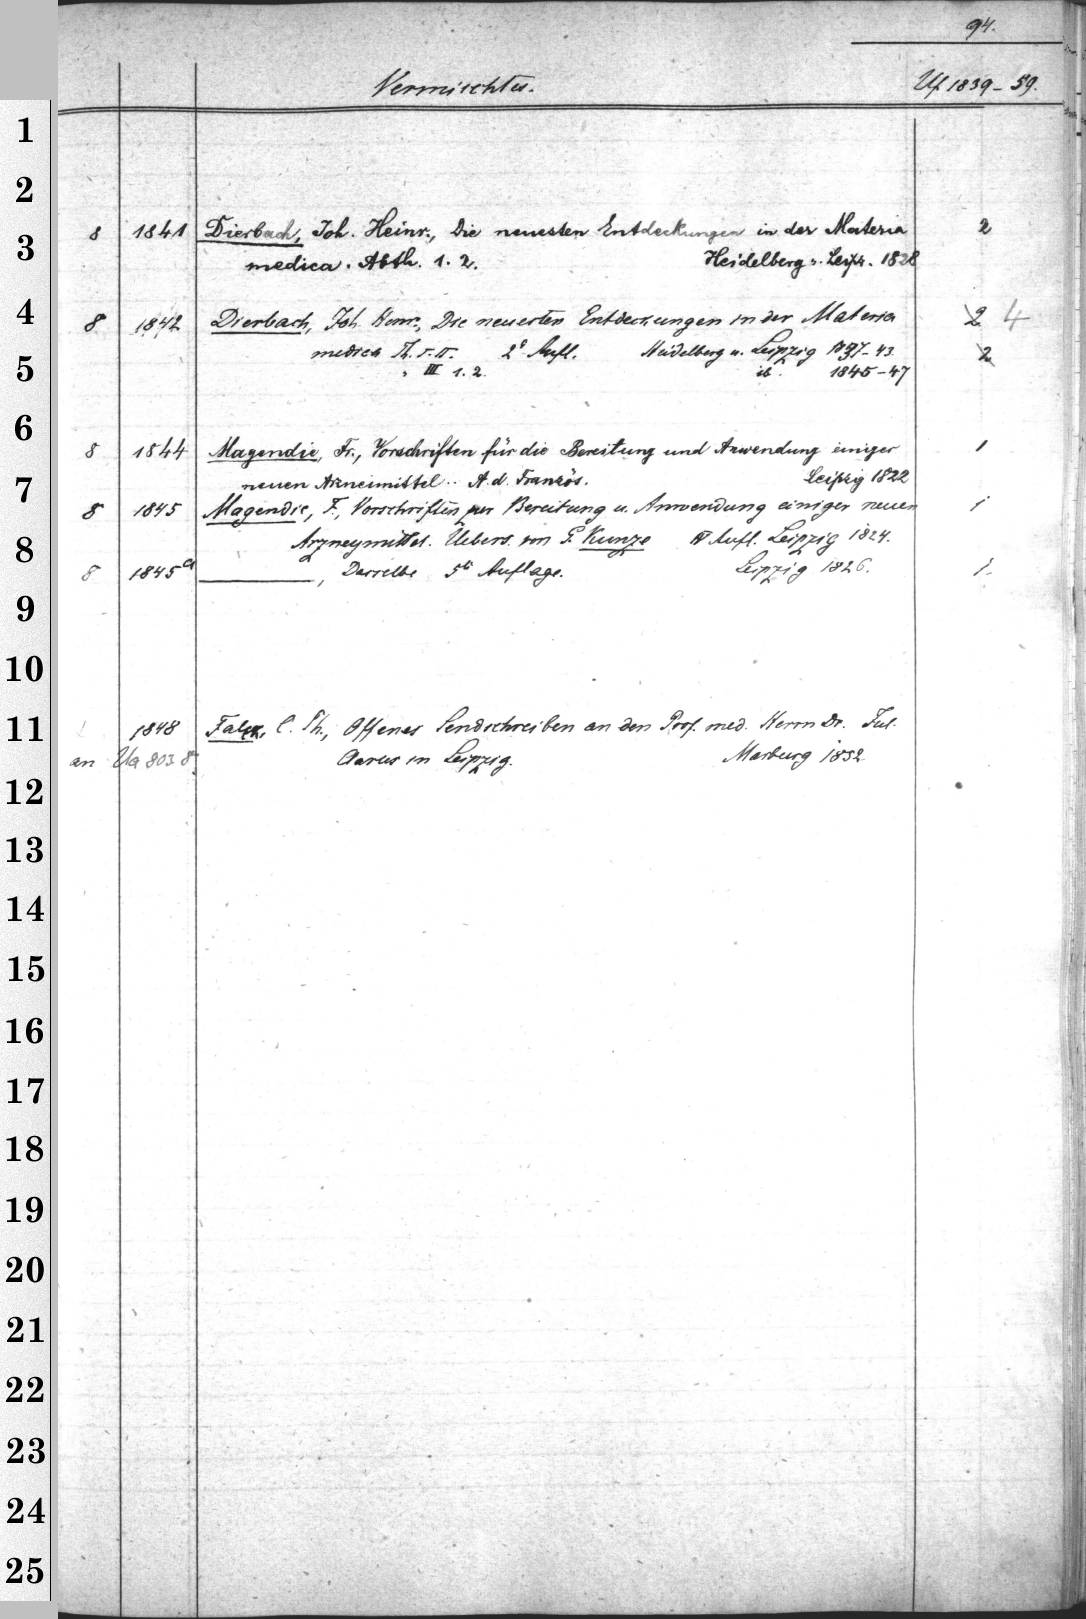 94.
Vermischtes. Uf 1839-59.
1
2
8 1841 Dierbach, Joh. Heinr., Die neuesten Entdeckungen in der Materia 2
3
medica. Abth. 1. 2. Heidelberg u. Leipz. 1828
4
8 1842 Dierbach, Joh. Heinr., Die neuesten Entdeckungen in der Materia 2 4
medica Th. I. II. 2e Aufl. Heidelberg u. Leipzig 1837-43 2
5
" III 1. 2. ib. 1845-47
6
8 1844 Magendie, Fr., Vorschriften für die Bereitung und Anwendung einiger 1
7
neuen Arzneimittel.. A. d. Französ. Leipzig 1822
8 1845 Magendie, F., Vorschriften zur Bereitung u. Anwendung einiger neuen 1
Arzneymittel. Uebers. von G. Kunze IV Aufl. Leipzig 1824.
8
8 1845a ———, Dasselbe 5te Auflage. Leipzig 1826. 1.
9
10
11
1848 Falck, C. Th., Offenes Sendschreiben an den Prof. med. Herrn Dr. Jul.
an Ua 803 8° Clarus in Leipzig. Marburg 1852
12
13
14
15
16
17
18
19
20
21
22
23
24
25